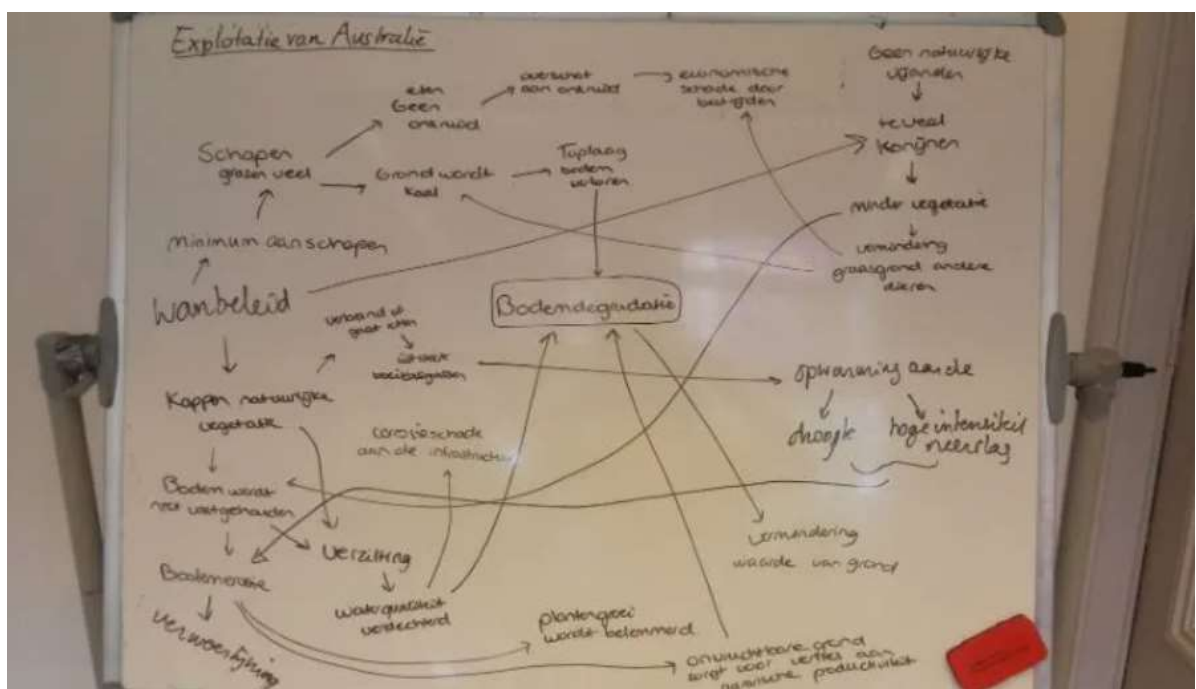 Explotatie van Australië
Schapen
grazen veel
eten
Geen
onkruid
overschot
aan onkruid
economische
schade door
bestrijden
Geen natuurlijke
vijanden
te veel
konijnen
Grond wordt
kaal
Toplaag
bodem
verloren
minder vegetatie
vermindering
graasgrond andere
dieren
minimum aan schapen
Wanbeleid
Bodemdegradatie
verband of
gaat
uitstoot
broeikasgassen
opwarming aarde
droogte
hoge intensiteit
neerslag
Kappen natuurlijke
vegetatie
corrosieschade
aan de infrastructuur
Bodem wordt
niet vastgehouden
Verzilting
vermindering
waarde van grond
Bodemerosie
waterqualiteit
verslechterd
plantengroei
wordt belemmerd
verwoestijning
onvruchtbare grond
zorgt voor verlies aan
productiviteit